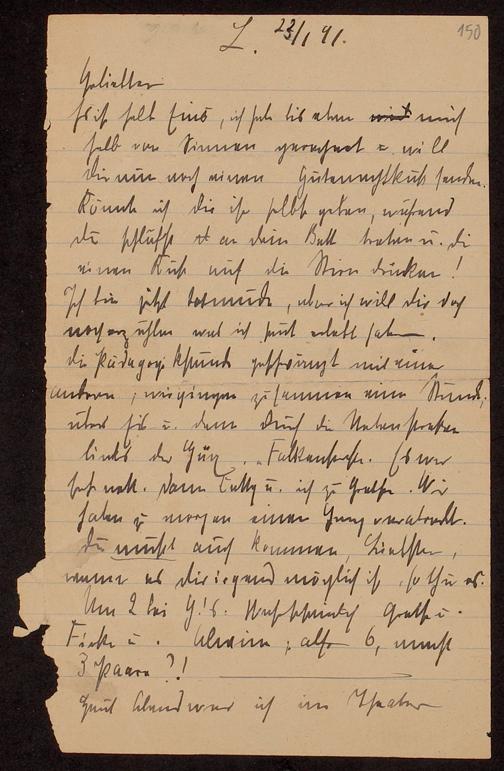 150
L. 23/1 91.
Geliebter
Es ist halb Eins, ich habe bis eben mich
halb von Sinnen gerechnet u. will
Dir nur noch einen Gutenachtkuß senden.
Könnte ich Dir ihn selbst geben, während
du schläfst an dein Bett treten u. dir
einen Kuß auf die Stirn drücken!
Ich bin jetzt todmüde, aber ich will dir doch
noch erzählen was ich heut erlebt habe.
die Pädagogikstunde geschwänzt mit einer
anderen, wir gingen zusammen eine Stunde,
über u. dann durch die Nebenstraßen
links der Falkenstraße. Es war
sehr nett. Dann u. ich zu Grethe. Wir
haben zu morgen einen Gang verabredet.
Du mußt auch kommen, Liebster,
wenn es dir irgend möglich ist, so thu es.
Um 2 bei Grethe u.
u. also 6, macht
3 Paare?!
Heut Abend war ich im Theater